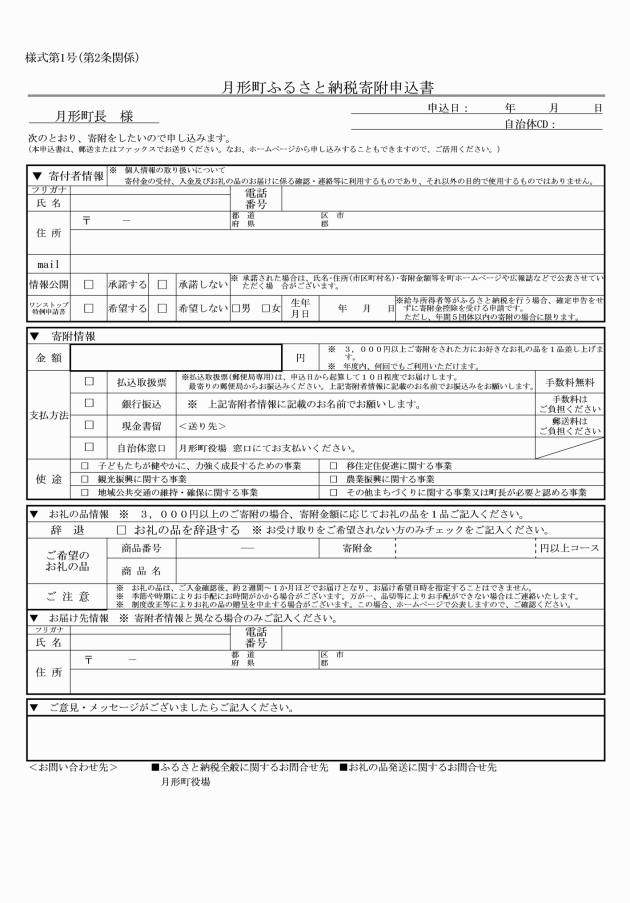 様式第1号(第2条関係)
月形町ふるさと納税寄附申込書
申込日： 年 月 日
月形町長 様
自治体CD：
次のとおり、寄附をしたいので申し込みます。
(本申込書は、郵送またはファックスでお送りください。なお、ホームページから申し込みすることもできますので、ご活用ください。)
▼ 寄付者情報
※ 個人情報の取り扱いについて
寄付金の受付、入金及びお礼の品のお届けに係る確認・連絡等に利用するものであり、それ以外の目的で使用するものではありません。
フリガナ
氏 名
電話
番号
住 所
〒 －
都 道
府 県
区 市
郡
mail
情報公開 □ 承諾する □ 承諾しない
※ 承諾された場合は、氏名・住所(市区町村名)・寄附金額等を町ホームページや広報誌などで公表させてい
ただく場 合がございます。
ワンストップ
特例申請書
□ 希望する □ 希望しない □男 □女
生年
月日
年 月 日
※給与所得者等がふるさと納税を行う場合、確定申告をせ
ずに寄附金控除を受ける申請です。
ただし、年間５団体以内の寄附の場合に限ります。
▼ 寄附情報
金 額 円
※ ３，０００円以上ご寄附をされた方にお好きなお礼の品を１品差し上げま
す。
※ 年度内、何回でもご利用いただけます。
支払方法
□ 払込取扱票
※払込取扱票(郵便局専用)は、申込日から起算して１０日程度でお届けします。
最寄りの郵便局からお振込みください。上記寄附者情報に記載のお名前でお振込みをお願いします。
手数料無料
□ 銀行振込 ※ 上記寄附者情報に記載のお名前でお願いします。
手数料は
ご負担ください
□ 現金書留 ＜送り先＞
郵送料は
ご負担ください
□ 自治体窓口 月形町役場 窓口にてお支払いください。
使 途
□ 子どもたちが健やかに、力強く成長するための事業 □ 移住定住促進に関する事業
□ 観光振興に関する事業 □ 農業振興に関する事業
□ 地域公共交通の維持・確保に関する事業 □ その他まちづくりに関する事業又は町長が必要と認める事業
▼ お礼の品情報 ※ ３，０００円以上のご寄附の場合、寄附金額に応じてお礼の品を１品ご記入ください。
辞 退 □ お礼の品を辞退する ※ お受け取りをご希望されない方のみチェックをご記入ください。
ご希望の
お礼の品
商品番号 ― 寄附金 円以上コース
商 品 名
ご 注 意
※ お礼の品は、ご入金確認後、約２週間～１か月ほどでお届けとなり、お届け希望日時を指定することはできません。
※ 季節や時期によりお手配にお時間がかかる場合がございます。万が一、品切等によりお手配ができない場合はご連絡いたします。
※ 制度改正等によりお礼の品の贈呈を中止する場合がございます。この場合、ホームページで公表しますので、ご確認ください。
▼ お届け先情報 ※ 寄附者情報と異なる場合のみご記入ください。
フリガナ
氏 名
電話
番号
住 所
〒 －
都 道
府 県
区 市
郡
▼ ご意見・メッセージがございましたらご記入ください。
＜お問い合わせ先＞ ■ふるさと納税全般に関するお問合せ先 ■お礼の品発送に関するお問合せ先
月形町役場